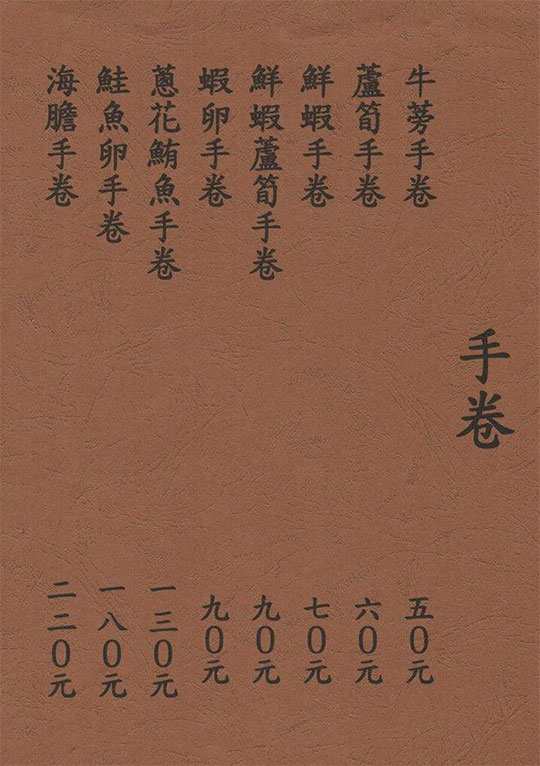 手卷
牛蒡手卷 五0元
蘆筍手卷 六0元
鮮蝦手卷 七0元
鮮蝦蘆筍手卷 九0元
蝦卵手卷 九0元
蔥花鮪魚手卷 一三0元
鮭魚卵手卷 一八0元
海膽手卷 二二0元